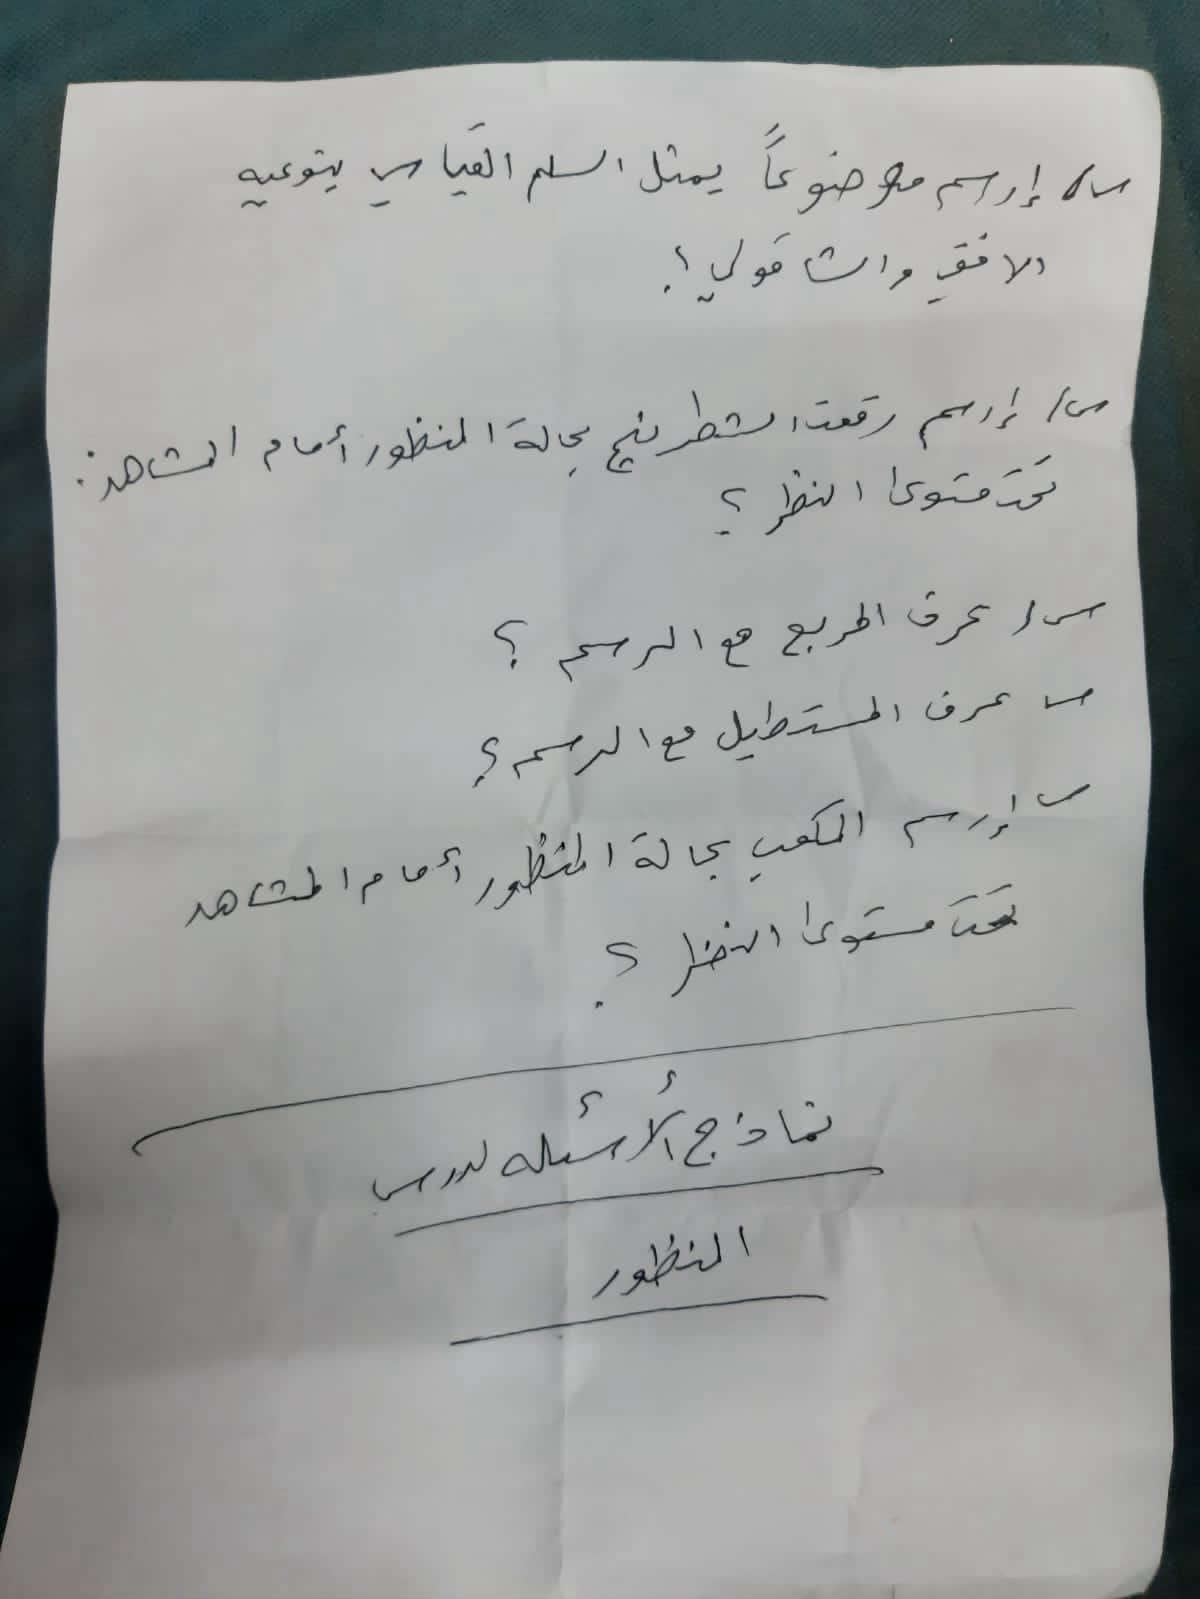 س/ إرسم موضوعاً يمثل السلم القياسي بنوعيه
الافقي والشاقولي؟
س/ إرسم رقعت الشطرنج بحالة المنظور أمام المشاهد:
تحت متوى النظر؟
س/ عرف المربع مع الرسم؟
س عرف المستطيل مع الرسم؟
س إرسم المكعب بحالة المنظور أمام المشاهد
تحت مستوى النظر؟
نماذج الأسئله لدرس
المنظور